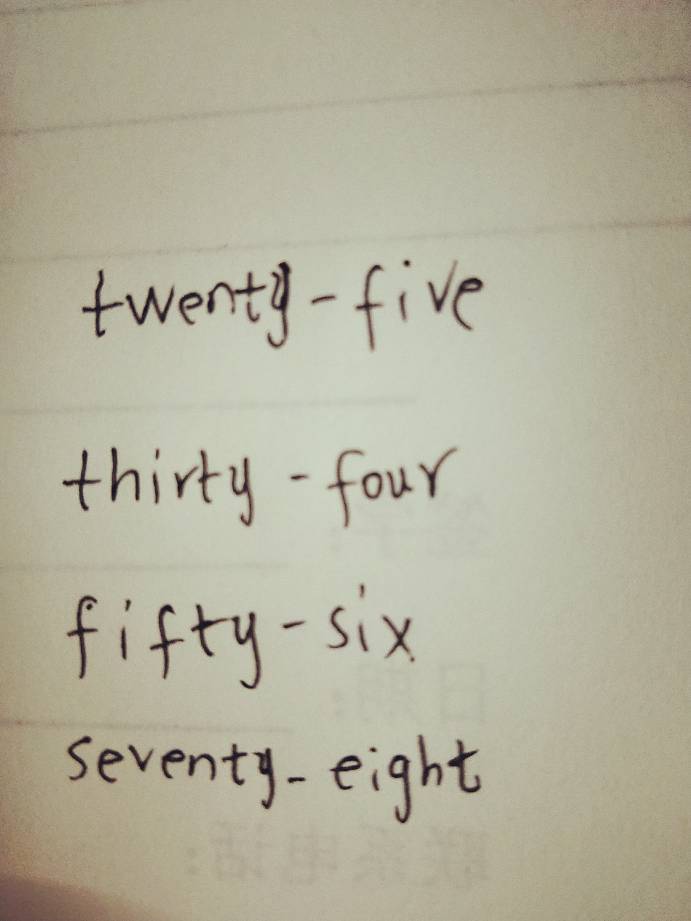 twenty-five
thirty-four
fifty-six
seventy-eight
签字:
日期:
联系电话: